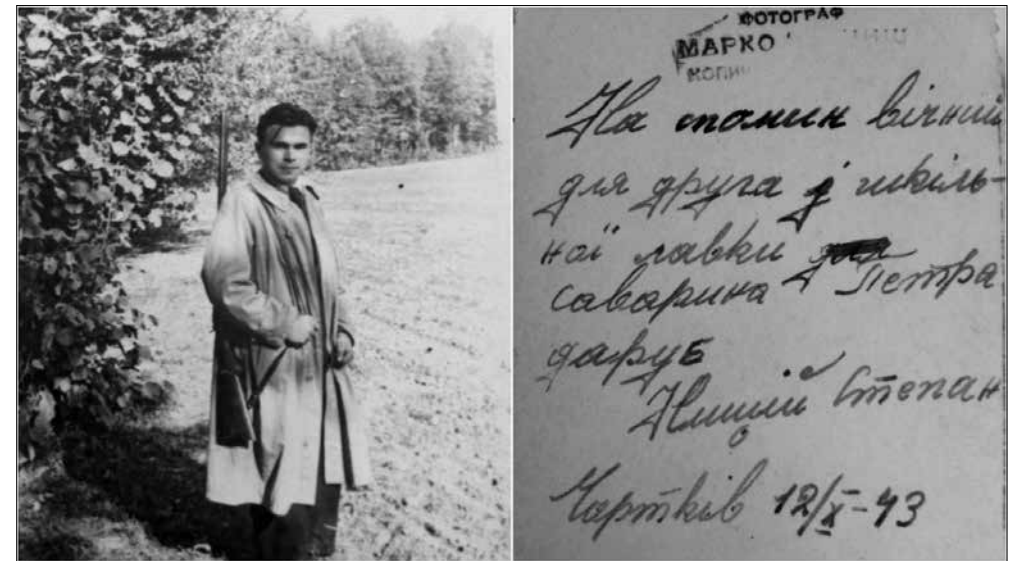 ФОТОГРАФ
МАРКО
На спомин вічний
для друга з шкіль-
ної лавки
Саварина Петра
дарує
Степан
Чортків 12/X-43